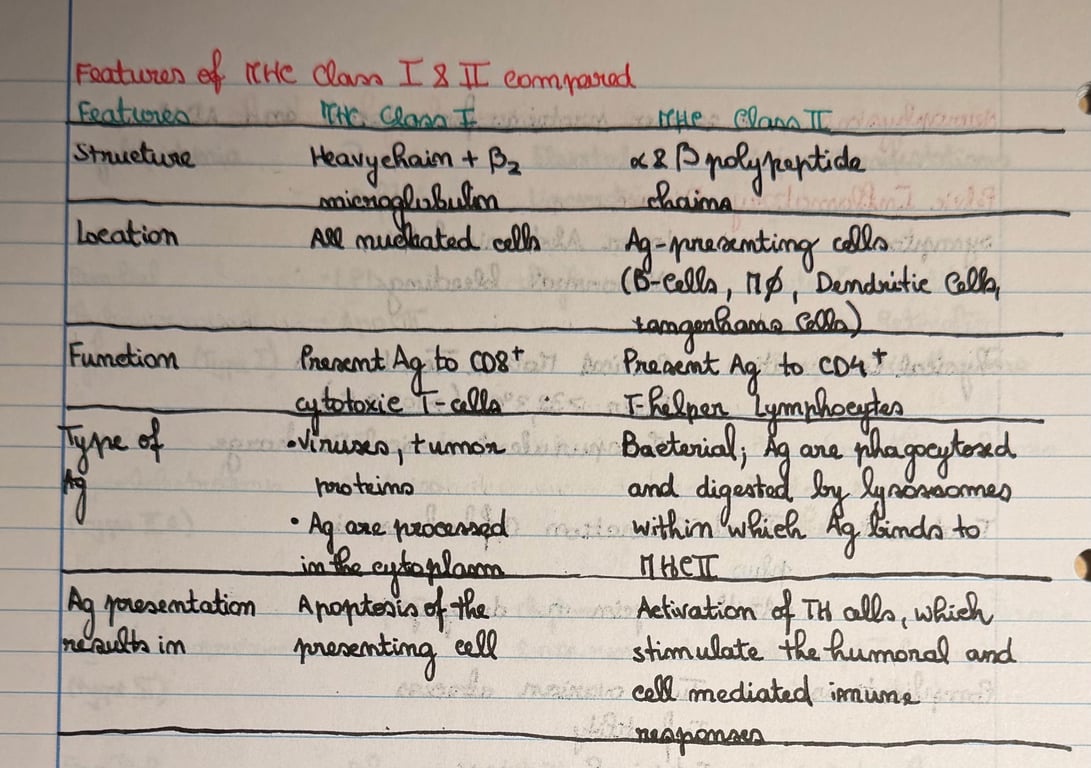 Features of MHC Class I & II compared
Features MHC Class I MHC Class II
Structure Heavychain + β2 α & β polypeptide
microglobulin chains
Location All nucleated cells Ag-presenting cells
(B-Cells, MØ, Dendritic Cells,
Langerhans Cells)
Function Present Ag to CD8+ Present Ag to CD4+
cytotoxic T-cells T-helper Lymphocytes
Type of •Viruses, tumor Bacterial; Ag are phagocytosed
Ag proteins and digested by lysosomes
• Ag are processed within which Ag binds to
in the cytoplasm MHC II
Ag presentation Apoptosis of the Activation of TH cells, which
results in presenting cell stimulate the humoral and
cell mediated immune
responses